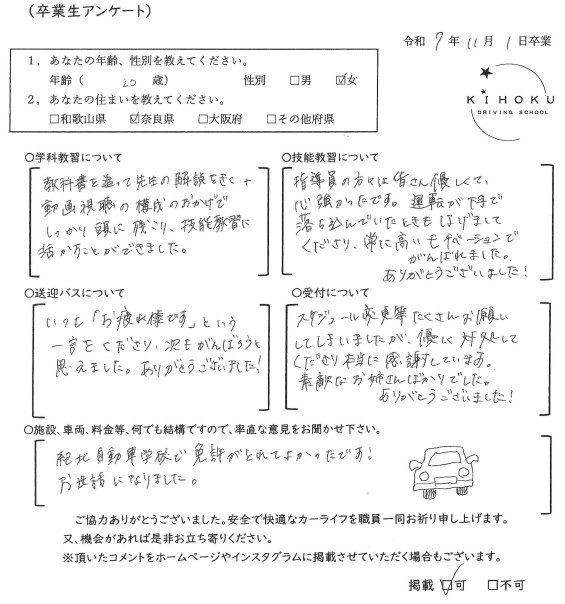 （卒業生アンケート）
令和 7 年 11 月 1 日卒業
1，あなたの年齢、性別を教えてください。
年齢（ 20 歳） 性別 □男 ☑女
2，あなたの住まいを教えてください。
□和歌山県 ☑奈良県 □大阪府 □その他府県
KIHOKU
DRIVING SCHOOL
○学科教習について
教科書を追って先生の解説をきく＋
動画視聴の構成のおかげで
しっかり頭に残こり、技能教習に
活かすことができました。
○技能教習について
指導員の方々は皆さん優しくて、
心強かったです。運転が下手で
落ち込んでいたときもはげまして
くださり、常に高いモチベーションで
がんばれました。
ありがとうございました！
○送迎バスについて
いつも「お疲れ様です」という
一言をくださり、次もがんばろうと
思えました。ありがとうございました！
○受付について
スケジュール変更等たくさんお願い
してしまいましたが、優しく対処して
くださり本当に感謝しています。
素敵なお姉さんばかりでした。
ありがとうございました！
○施設、車両、料金等、何でも結構ですので、率直な意見をお聞かせ下さい。
紀北自動車学校で免許がとれてよかったです！
お世話になりました。
ご協力ありがとうございました。安全で快適なカーライフを職員一同お祈り申し上げます。
又、機会があれば是非お立ち寄りください。
※頂いたコメントをホームページやインスタグラムに掲載させていただく場合もございます。
掲載 ☑可 □不可